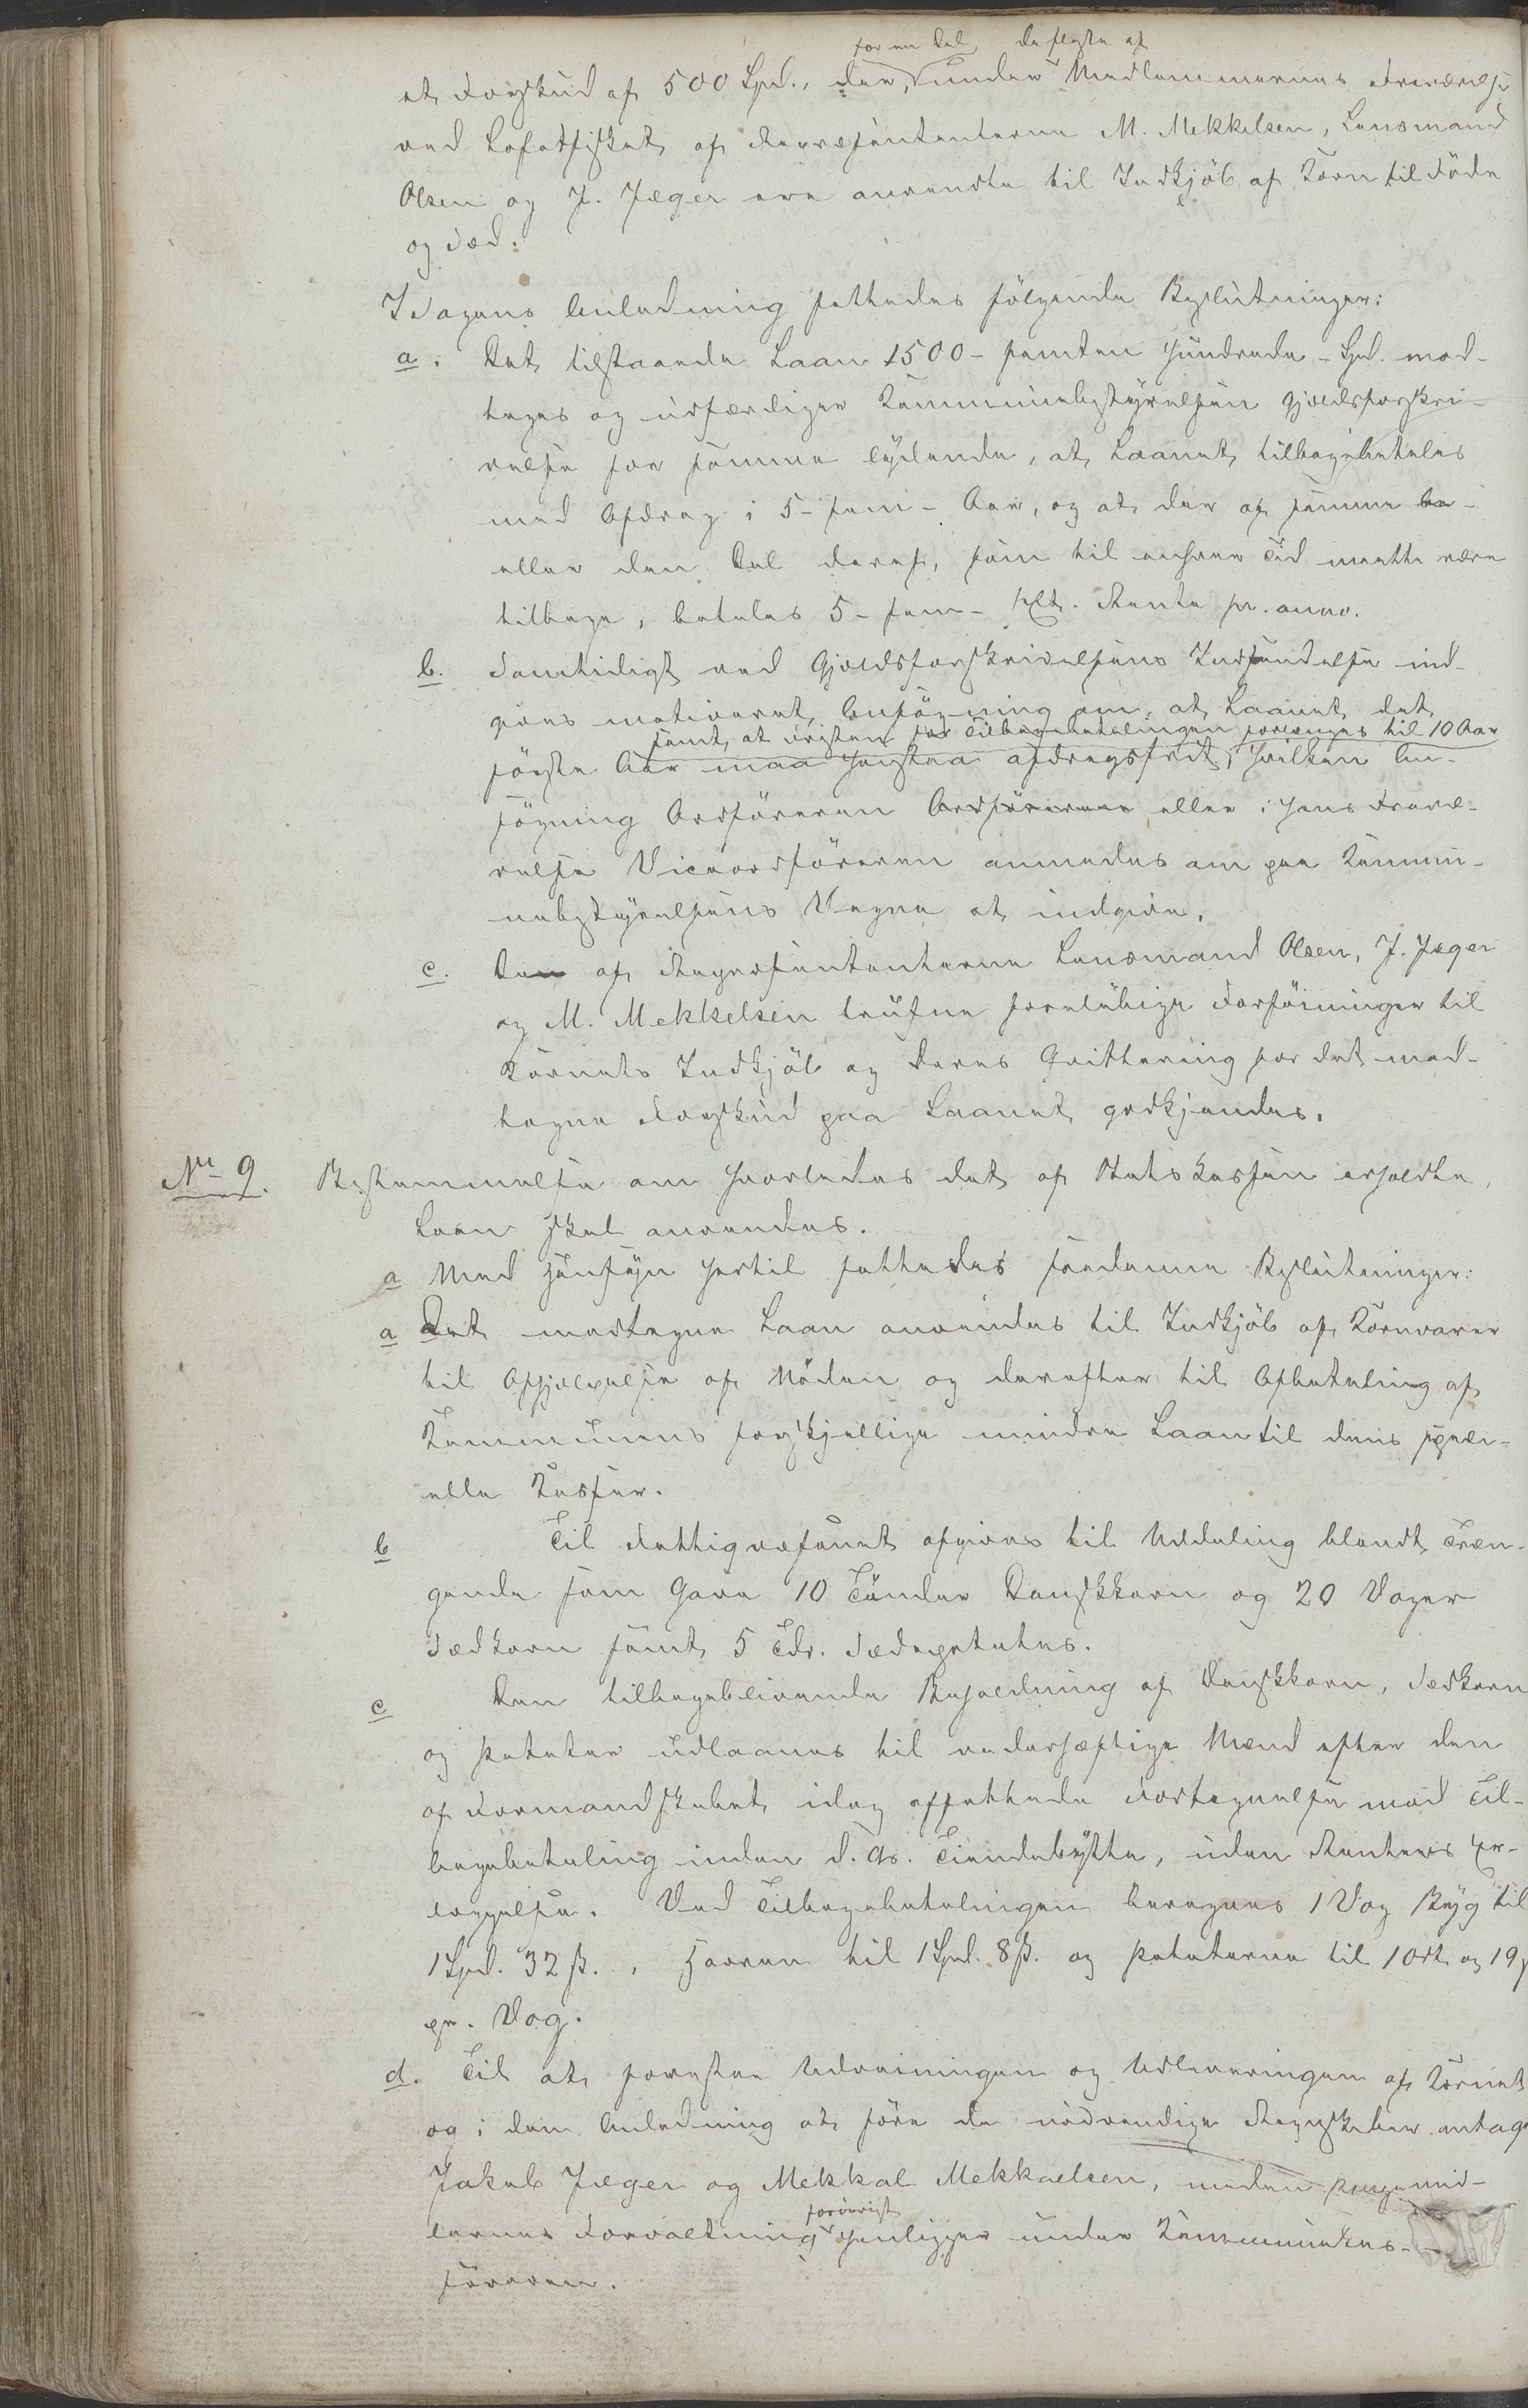 for en Del de fleste af
et Forskud af 500 Spd., der, under Medlemmernes Fraværelse
ved Lofotfisket, af Repræsentanterne M. Mekkelsen, Lensmand
Olsen og J. Jæger ere anvendte til Indkjöb af Korn til Föde
og Sæd.
I Sagens Anledning fattedes fölgende Beslutninger:
a. Det tilstaaede Laan 1500 - femten Hundrede - Spd. mod-
tages og udfærdiger Kommunebestyrelsen Gjældsforskri-
velse for samme lydende, at Laanet tilbagebetales
med Afdrag i 5 - fem - Aar, og at der af samme
eller den Del deraf, som til enhver Tid maatte være
tilbage, betales 5 - fem - pCt. Rente pr. anno.
b. Samtidigt ved Gjældsforskrivelsens Indsendelse ind-
gives motiveret Ansögning om, at Laanet det
samt, at Fristen for Tilbagebetalingen forlænges til 10 Aar
förste Aar maa henstaa afdragsfrit, hvilken An-
sögning Ordföreren Ordföreren eller i hans Fravæ-
relse Viceordföreren anmodes om paa Kommu-
nebestyrelsens Vegne at indgive.
c. De af Repræsentanterne Lensmand Olsen, J. Jæger
og M. Mekkelsen trufne forelöbige Forföininger til
Kornets Indkjöb og deres Qvittering for det mod-
tagne Forskud paa Laanet, godkjendes.
No 9. Bestemmelse om hvorledes det af Statskassen erholdte
Laan skal anvendes.
a Med Hensyn hertil fattedes saadanne Beslutninger:
a Det modtagne Laan anvendes til Indkjöb af Kornvarer
til Afhjælpelse af Nöden og derefter til Afbetaling af
Kommunens forskjellige mindre Laan til dens speci-
elle Kasser.
b Til Fattigvæsenet afgives til Uddeling blandt Træn-
gende som Gave 10 Tönder Danskkorn og 20 Voger
Sædkorn samt 5 Tdr. Sædepotetes.
c Den tilbageblivende Beholdning af Danskkorn, Sædkorn
og Poteter udlaanes til vederhæftige Mænd efter den
af Formandskabet idag affattede Fortegnelse mod Til-
bagebetaling inden d. As. Tiendebytte, uden Renters Er-
læggelse. Ved Tilbagebetalingen beregnes 1 Vog Byg til
1 Spd. 32 ß., Havren til 1 Spd. 8 ß. og Poteterne til 1 Ort og 19
pr. Vog.
d. Til at forestaa Udveiningen og Udleveringen af Kornet
og i den Anledning at före de nödvendige Regnskaber antages
Jakob Jæger og Mekkal Mekkaelsen, medens Pengemid-
forövrigt
lernes Forvaltning henligger under Kommunekas-
föreren.